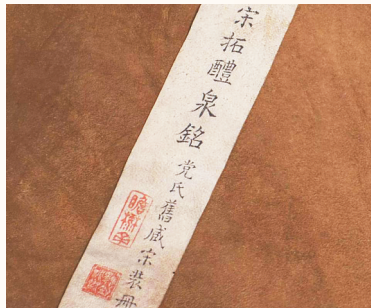 宋拓醴泉銘
党氏舊咸宋装册